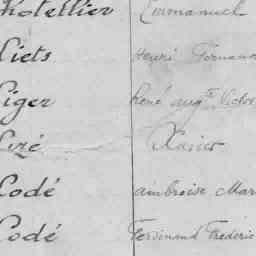 hotellier Emmanuel
Liets Henri Fernand
Liger René Aug.te Victor
Lizé Xavier
Lodé Ambroise Mar
Lodé Ferdinand Frédéric